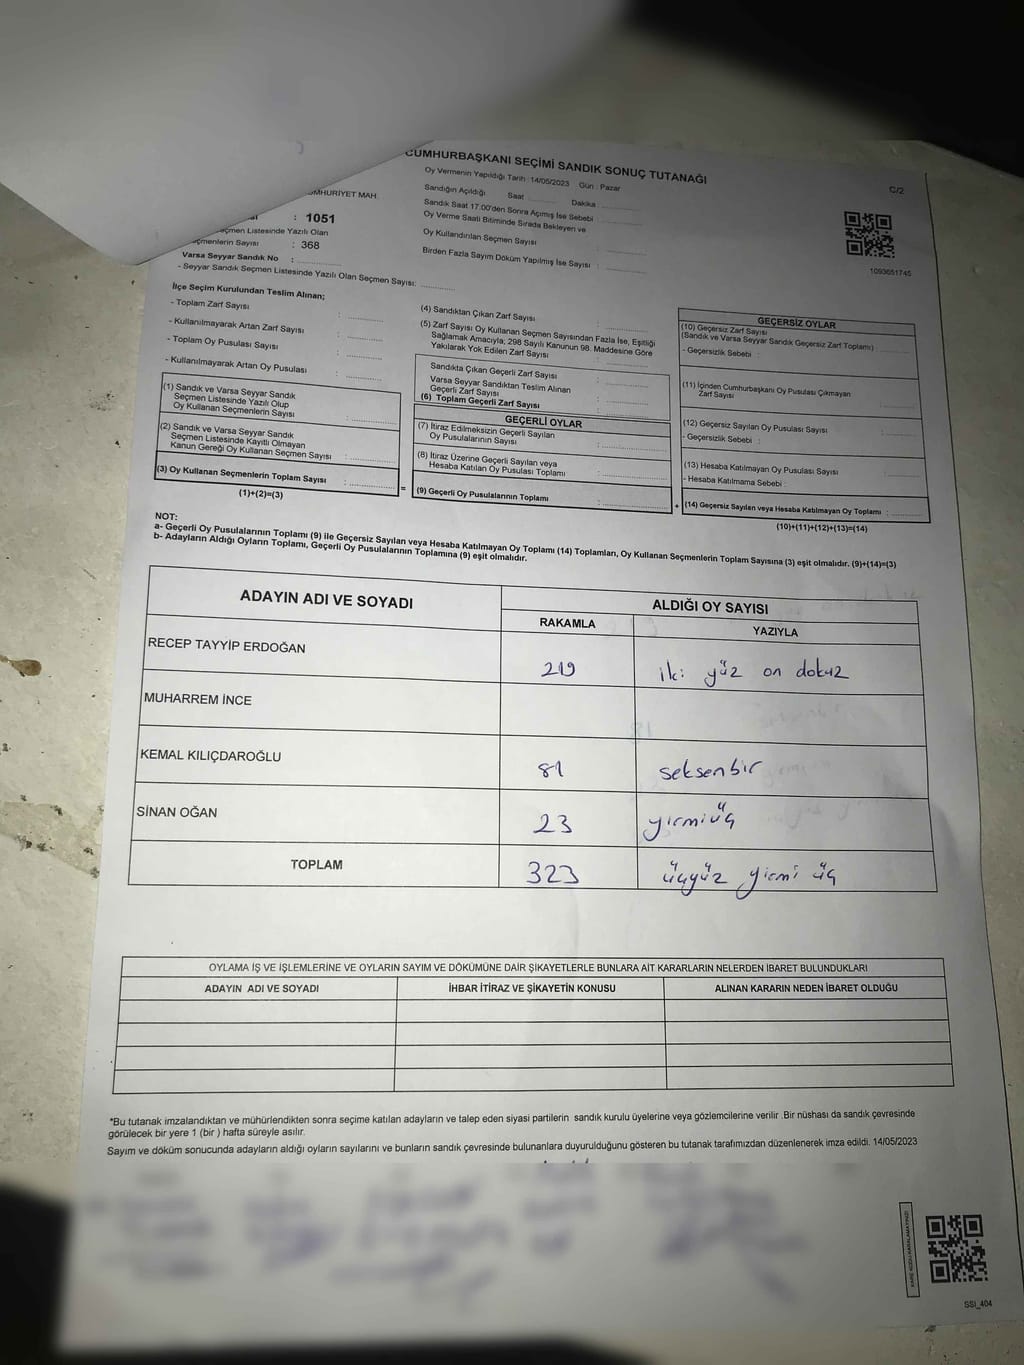 CUMHURBAŞKANI SEÇİMİ SANDIK SONUÇ TUTANAĞI
Oy Vermenin Yapıldığı Tarih : 14/05/2023 Gün : Pazar
C/2
MAH.
: 1051
Listesinde Yazılı Olan
Sayısı : 368
Varsa Seyyar Sandık No :
- Seyyar Sandık Seçmen Listesinde Yazılı Olan Seçmen Sayısı:
Sandığın Açıldığı Saat Dakika
Sandık Saat 17.00'den Sonra Açımış İse Sebebi
Oy Verme Saati Bitiminde Sırada Bekleyen ve
Oy Kullandırılan Seçmen Sayısı :
Birden Fazla Sayım Döküm Yapılmış İse Sayısı :
1093651745
İlçe Seçim Kurulundan Teslim Alınan;
- Toplam Zarf Sayısı :
- Kullanılmayarak Artan Zarf Sayısı :
- Toplam Oy Pusulası Sayısı :
- Kullanılmayarak Artan Oy Pusulası :
(1) Sandık ve Varsa Seyyar Sandık
Seçmen Listesinde Yazılı Olup
Oy Kullanan Seçmenlerin Sayısı :
(2) Sandık ve Varsa Seyyar Sandık
Seçmen Listesinde Kayıtlı Olmayan
Kanun Gereği Oy Kullanan Seçmen Sayısı :
(3) Oy Kullanan Seçmenlerin Toplam Sayısı :
(1)+(2)=(3)
(4) Sandıktan Çıkan Zarf Sayısı :
(5) Zarf Sayısı Oy Kullanan Seçmen Sayısından Fazla İse, Eşitliği
Sağlamak Amacıyla; 298 Sayılı Kanunun 98. Maddesine Göre
Yakılarak Yok Edilen Zarf Sayısı :
Sandıkta Çıkan Geçerli Zarf Sayısı :
Varsa Seyyar Sandıktan Teslim Alınan
Geçerli Zarf Sayısı :
(6) Toplam Geçerli Zarf Sayısı :
GEÇERLİ OYLAR
(7) İtiraz Edilmeksizin Geçerli Sayılan
Oy Pusulalarının Sayısı :
(8) İtiraz Üzerine Geçerli Sayılan veya
Hesaba Katılan Oy Pusulası Toplamı :
=
(9) Geçerli Oy Pusulalarının Toplamı :
+
GEÇERSİZ OYLAR
(10) Geçersiz Zarf Sayısı
(Sandık ve Varsa Seyyar Sandık Geçersiz Zarf Toplamı) :
- Geçersizlik Sebebi :
(11) İçinden Cumhurbaşkanı Oy Pusulası Çıkmayan
Zarf Sayısı :
(12) Geçersiz Sayılan Oy Pusulası Sayısı :
- Geçersizlik Sebebi :
(13) Hesaba Katılmayan Oy Pusulası Sayısı :
- Hesaba Katılmama Sebebi :
(14) Geçersiz Sayılan veya Hesaba Katılmayan Oy Toplamı :
(10)+(11)+(12)+(13)=(14)
NOT:
a- Geçerli Oy Pusulalarının Toplamı (9) ile Geçersiz Sayılan veya Hesaba Katılmayan Oy Toplamı (14) Toplamları, Oy Kullanan Seçmenlerin Toplam Sayısına (3) eşit olmalıdır. (9)+(14)=(3)
b- Adayların Aldığı Oyların Toplamı, Geçerli Oy Pusulalarının Toplamına (9) eşit olmalıdır.
ADAYIN ADI VE SOYADI
ALDIĞI OY SAYISI
RAKAMLA YAZIYLA
RECEP TAYYİP ERDOĞAN 219 iki yüz on dokuz
MUHARREM İNCE
KEMAL KILIÇDAROĞLU 81 seksenbir
SİNAN OĞAN 23 yirmiüç
TOPLAM 323 üçyüz yirmi üç
OYLAMA İŞ VE İŞLEMLERİNE VE OYLARIN SAYIM VE DÖKÜMÜNE DAİR ŞİKAYETLERLE BUNLARA AİT KARARLARIN NELERDEN İBARET BULUNDUKLARI
ADAYIN ADI VE SOYADI İHBAR İTİRAZ VE ŞİKAYETİN KONUSU ALINAN KARARIN NEDEN İBARET OLDUĞU
*Bu tutanak imzalandıktan ve mühürlendikten sonra seçime katılan adayların ve talep eden siyasi partilerin sandık kurulu üyelerine veya gözlemcilerine verilir .Bir nüshası da sandık çevresinde
görülecek bir yere 1 (bir ) hafta süreyle asılır.
Sayım ve döküm sonucunda adayların aldığı oyların sayılarını ve bunların sandık çevresinde bulunanlara duyurulduğunu gösteren bu tutanak tarafımızdan düzenlenerek imza edildi. 14/05/2023
KARE KODU KARALAMAYINIZ!
SSI_404